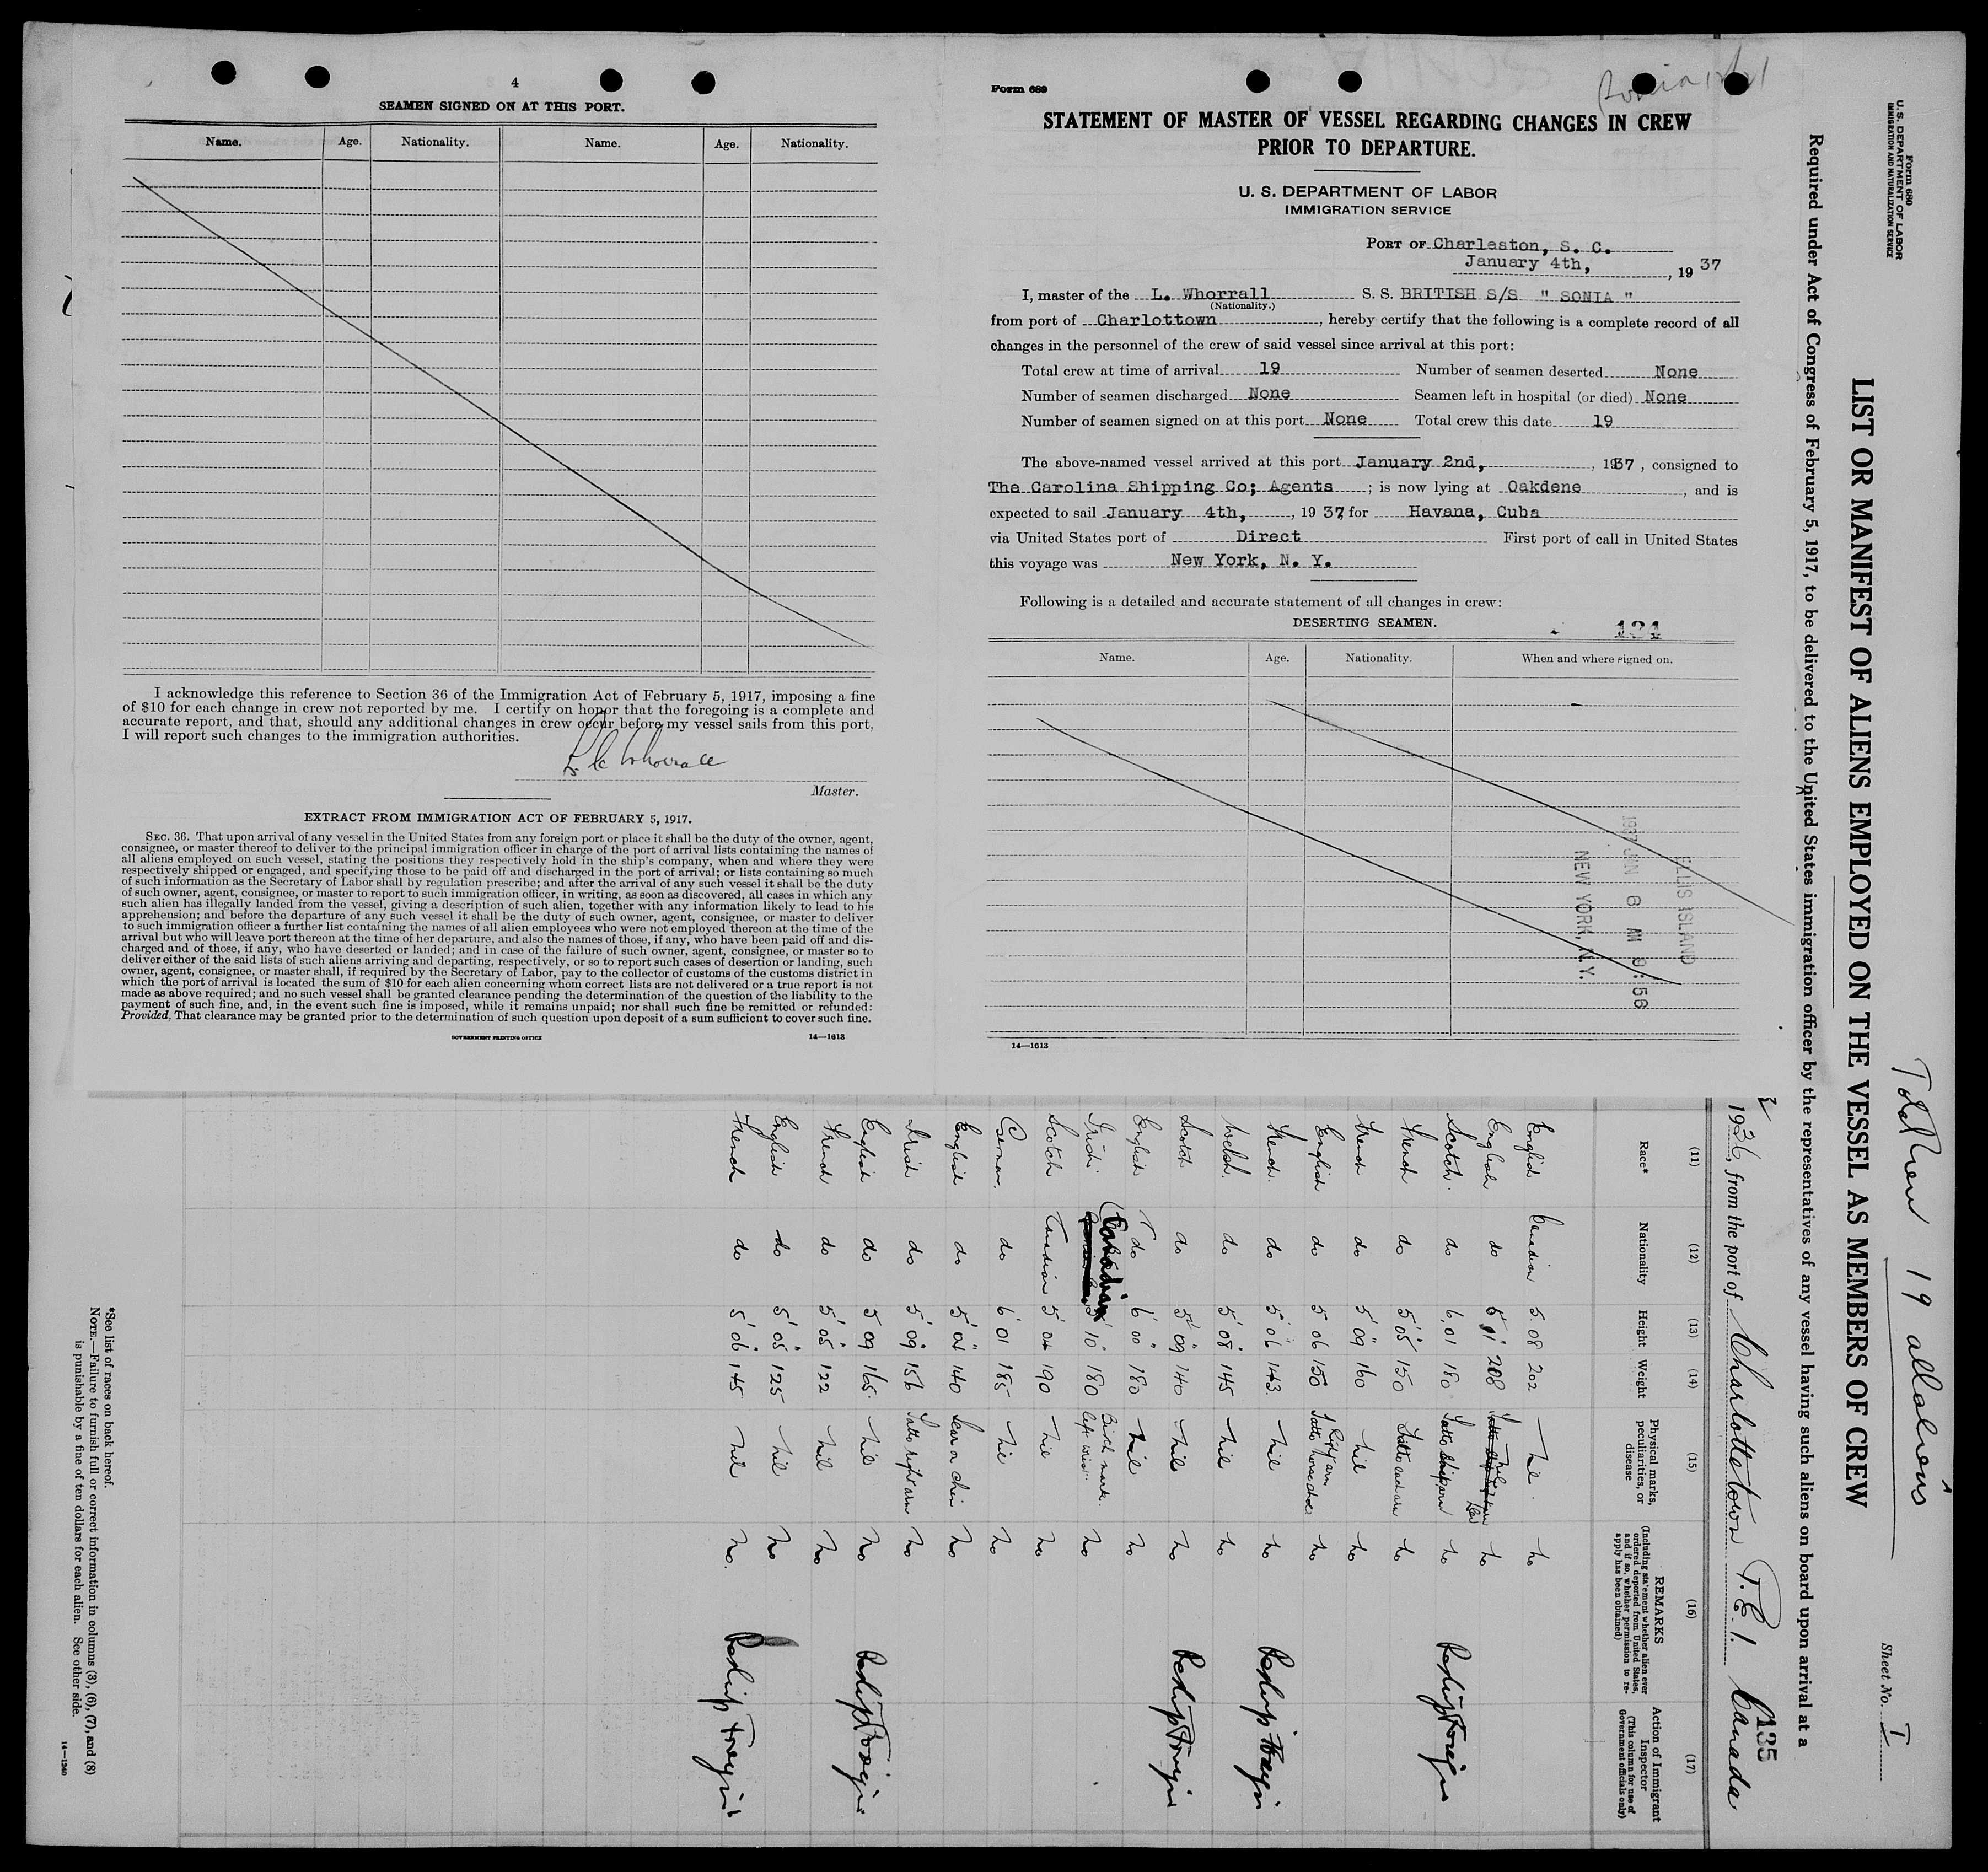 4
SEAMEN SIGNED ON AT THIS PORT.
Name. Age. Nationality. Name. Age. Nationality.
I acknowledge this reference to Section 36 of the Immigration Act of February 5, 1917, imposing a fine
of $10 for each change in crew not reported by me. I certify on honor that the foregoing is a complete and
accurate report, and that, should any additional changes in crew occur before my vessel sails from this port,
I will report such changes to the immigration authorities.
L C Whorrall
Master.
EXTRACT FROM IMMIGRATION ACT OF FEBRUARY 5, 1917.
SEC. 36. That upon arrival of any vessel in the United States from any foreign port or place it shall be the duty of the owner, agent,
consignee, or master thereof to deliver to the principal immigration officer in charge of the port of arrival lists containing the names of
all aliens employed on such vessel, stating the positions they respectively hold in the ship's company, when and where they were
respectively shipped or engaged, and specifying those to be paid off and discharged in the port of arrival; or lists containing so much
of such information as the Secretary of Labor shall by regulation prescribe; and after the arrival of any such vessel it shall be the duty
of such owner, agent, consignee, or master to report to such immigration officer, in writing, as soon as discovered, all cases in which any
such alien has illegally landed from the vessel, giving a description of such alien, together with any information likely to lead to his
apprehension; and before the departure of any such vessel it shall be the duty of such owner, agent, consignee, or master to deliver
to such immigration officer a further list containing the names of all alien employees who were not employed thereon at the time of the
arrival but who will leave port thereon at the time of her departure, and also the names of those, if any, who have been paid off and dis-
charged and of those, if any, who have deserted or landed; and in case of the failure of such owner, agent, consignee, or master so to
deliver either of the said lists of such aliens arriving and departing, respectively, or so to report such cases of desertion or landing, such
owner, agent, consignee, or master shall, if required by the Secretary of Labor, pay to the collector of customs of the customs district in
which the port of arrival is located the sum of $10 for each alien concerning whom correct lists are not delivered or a true report is not
made as above required; and no such vessel shall be granted clearance pending the determination of the question of the liability to the
payment of such fine, and, in the event such fine is imposed, while it remains unpaid; nor shall such fine be remitted or refunded:
Provided, That clearance may be granted prior to the determination of such question upon deposit of a sum sufficient to cover such fine.
GOVERNMENT PRINTING OFFICE 14—1613
Form 689
STATEMENT OF MASTER OF VESSEL REGARDING CHANGES IN CREW
PRIOR TO DEPARTURE.
U. S. DEPARTMENT OF LABOR
IMMIGRATION SERVICE
PORT OF Charleston, S. C.
January 4th, , 19 37
I, master of the L. Whorrall S. S. BRITISH S/S " SONIA "
(Nationality.)
from port of Charlottown , hereby certify that the following is a complete record of all
changes in the personnel of the crew of said vessel since arrival at this port:
Total crew at time of arrival 19 Number of seamen deserted None
Number of seamen discharged None Seamen left in hospital (or died) None
Number of seamen signed on at this port None Total crew this date 19
The above-named vessel arrived at this port January 2nd, , 1937 , consigned to
The Carolina Shipping Co; Agents ; is now lying at Oakdene , and is
expected to sail January 4th, , 19 37, for Havana, Cuba
via United States port of Direct First port of call in United States
this voyage was New York, N. Y.
Following is a detailed and accurate statement of all changes in crew:
DESERTING SEAMEN. 134
Name. Age. Nationality. When and where signed on.
ELLIS ISLAND
1937 JAN 6 AM 9:56
NEW YORK, N.Y.
14—1613
Form 680
U. S. DEPARTMENT OF LABOR
IMMIGRATION AND NATURALIZATION SERVICE
Total Crew 19 all aliens
Sheet No. I
LIST OR MANIFEST OF ALIENS EMPLOYED ON THE VESSEL AS MEMBERS OF CREW
Required under Act of Congress of February 5, 1917, to be delivered to the United States immigration officer by the representatives of any vessel having such aliens on board upon arrival at a
135
1936, from the port of Charlottetown P.E.I. Canada
(11) (12) (13) (14) (15) (16) (17)
Race* Nationality Height Weight Physical marks, peculiarities, or disease REMARKS (Including statement whether alien ever ordered deported from United States, and if so, whether permission to re-apply has been obtained) Action of Immigrant Inspector (This column for use of Government officials only)
English Canadian 5.08 202 Nil. No
English do 5 11 208 No
Scotch. do 6,01 180 No
French do 5'05" 150 No
French do 5'09" 160 Nil No
English do 5 06 150 Tatto horse shoe Right arm No
French. do 5'06 143. Nil No
Welsh. do 5'08" 145 Nil No
Scotch do 5'09" 140 Nil No
English do 6'00" 180 Nil No
Irish Canadian 5'10" 180 Birth mark. left wrist. No
Scotch Canadian 5'04 190 Nil No
German. do 6'01 185 Nil No
English do 5'04" 140 Scar on chin No
Irish do 5'09" 156 Tatto right arm No
English do 5 09 165. Nil No
French do 5'05" 122 Nil No
English do 5'05" 125 Nil No
French do 5'06" 145 Nil No.
*See list of races on back hereof.
NOTE.—Failure to furnish full or correct information in columns (3), (6), (7), and (8)
is punishable by a fine of ten dollars for each alien. See other side.
14—1240